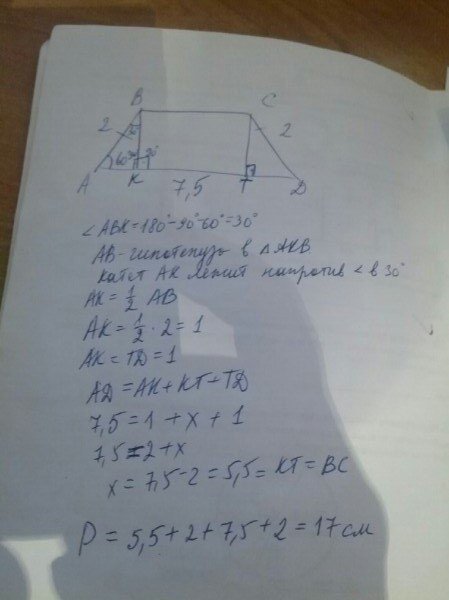 B C
2 30° 2
A 60° 90° K 7,5 T D
∠ABK=180°-90°-60°=30°
AB-гипотенуза в △AKB
катет AK лежит напротив < в 30°
AK = 1/2 AB
AK = 1/2 · 2 = 1
AK = TD = 1
AD = AK + KT + TD
7,5 = 1 + x + 1
7,5 = 2 + x
x = 7,5 - 2 = 5,5 = KT = BC
P = 5,5 + 2 + 7,5 + 2 = 17 см